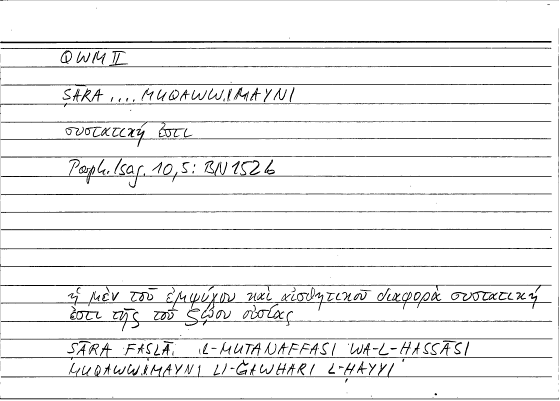 QWM II
ṢĀRA .... MUQAWWIMAYNI
συστατική ἐστι
Porph. Isag. 10,5: BN 152b
ἡ μὲν τοῦ ἐμψύχου καὶ αἰσθητικοῦ διαφορὰ συστατική
ἐστι τῆς τοῦ ζῴου οὐσίας
ṢĀRA FAṢLĀ L-MUTANAFFASI WA-L-ḤASSĀSI
MUQAWWIMAYNI LI-ǦAWHARI L-ḤAYYI